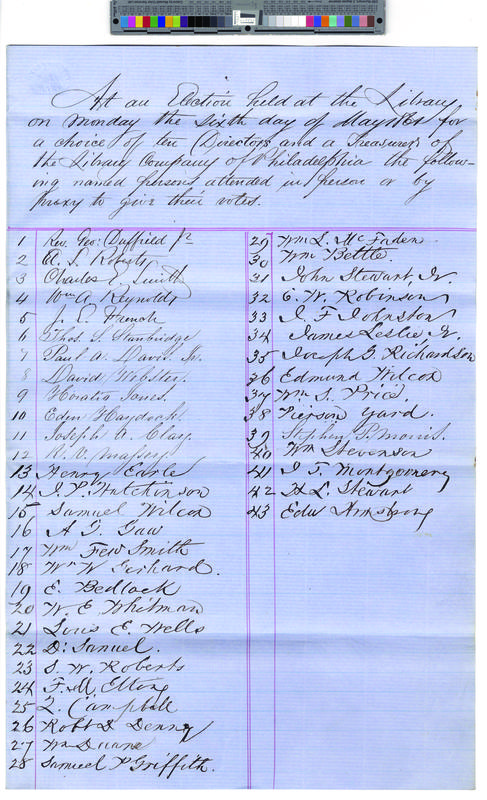 At an Election held at the Library
on Monday the Sixth day of May 1861 for
a choice of ten Directors and a Treasurer of
the Library Company of Philadelphia the follow-
ing named persons attended in person or by
proxy to give their votes.
1 Rev. Geo: Duffield Jr
2 A. S. Roberts
3 Charles E. Smith
4 Wm A. Reynolds
5 J. E. French
6 Thos. S. Stanbridge
7 Paul A. Davis Jr.
8 David Webster.
9 Horatio Jones.
10 Eden Haydock.
11 Joseph A. Clay.
12 R. V. Massey
13 Henry Earle
14 I. P. Hutchinson
15 Samuel Wilcox
16 A. G. Gaw
17 Wm Few Smith
18 Wm W Gerhard.
19 E. Bedlock
20 W. E. Whitman
21 Louis E. Wells
22 D: Samuel.
23 S. W. Roberts
24 F. M. Etting
25 Q. Campbell
26 Robt D Denny
27 Wm Duane
28 Samuel P Griffith.
29 Wm L. McFaden
30 Wm Bettle
31 John Stewart, Jr.
32 E. W. Robinson
33 J. F. Johnston
34 James Leslie, Jr.
35 Joseph G. Richardson
36 Edmund Wilcox
37 Wm S. Price.
38 Pierson Yard.
39 Stephen P. Morris.
40 Wm Stevenson
41 J T. Montgomery
42 H L. Stewart
43 Edw Armstrong